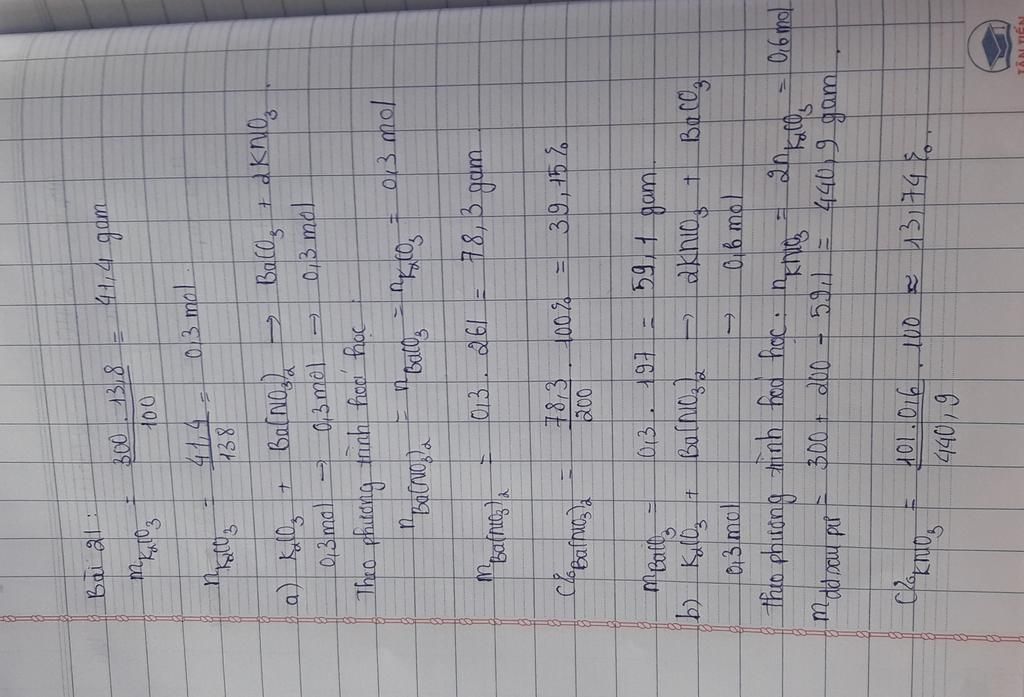 Bài 21:
m K₂CO₃ = 300 . 13,8 / 100 = 41,4 gam
n K₂CO₃ = 41,4 / 138 = 0,3 mol.
a) K₂CO₃ + Ba(NO₃)₂ → BaCO₃ + 2KNO₃.
0,3 mol → 0,3 mol → 0,3 mol
Theo phương trình hoá học:
n Ba(NO₃)₂ = n BaCO₃ = n K₂CO₃ = 0,3 mol
m Ba(NO₃)₂ = 0,3 . 261 = 78,3 gam.
C% Ba(NO₃)₂ = 78,3 / 200 . 100% = 39,15%
m BaCO₃ = 0,3 . 197 = 59,1 gam.
b) K₂CO₃ + Ba(NO₃)₂ → 2KNO₃ + BaCO₃
0,3 mol → 0,6 mol
theo phương trình hoá học: n KNO₃ = 2n K₂CO₃ = 0,6 mol
m dd sau pư = 300 + 200 - 59,1 = 440,9 gam.
C% KNO₃ = 101 . 0,6 / 440,9 . 100 ≈ 13,74%.
TÂN TIẾN